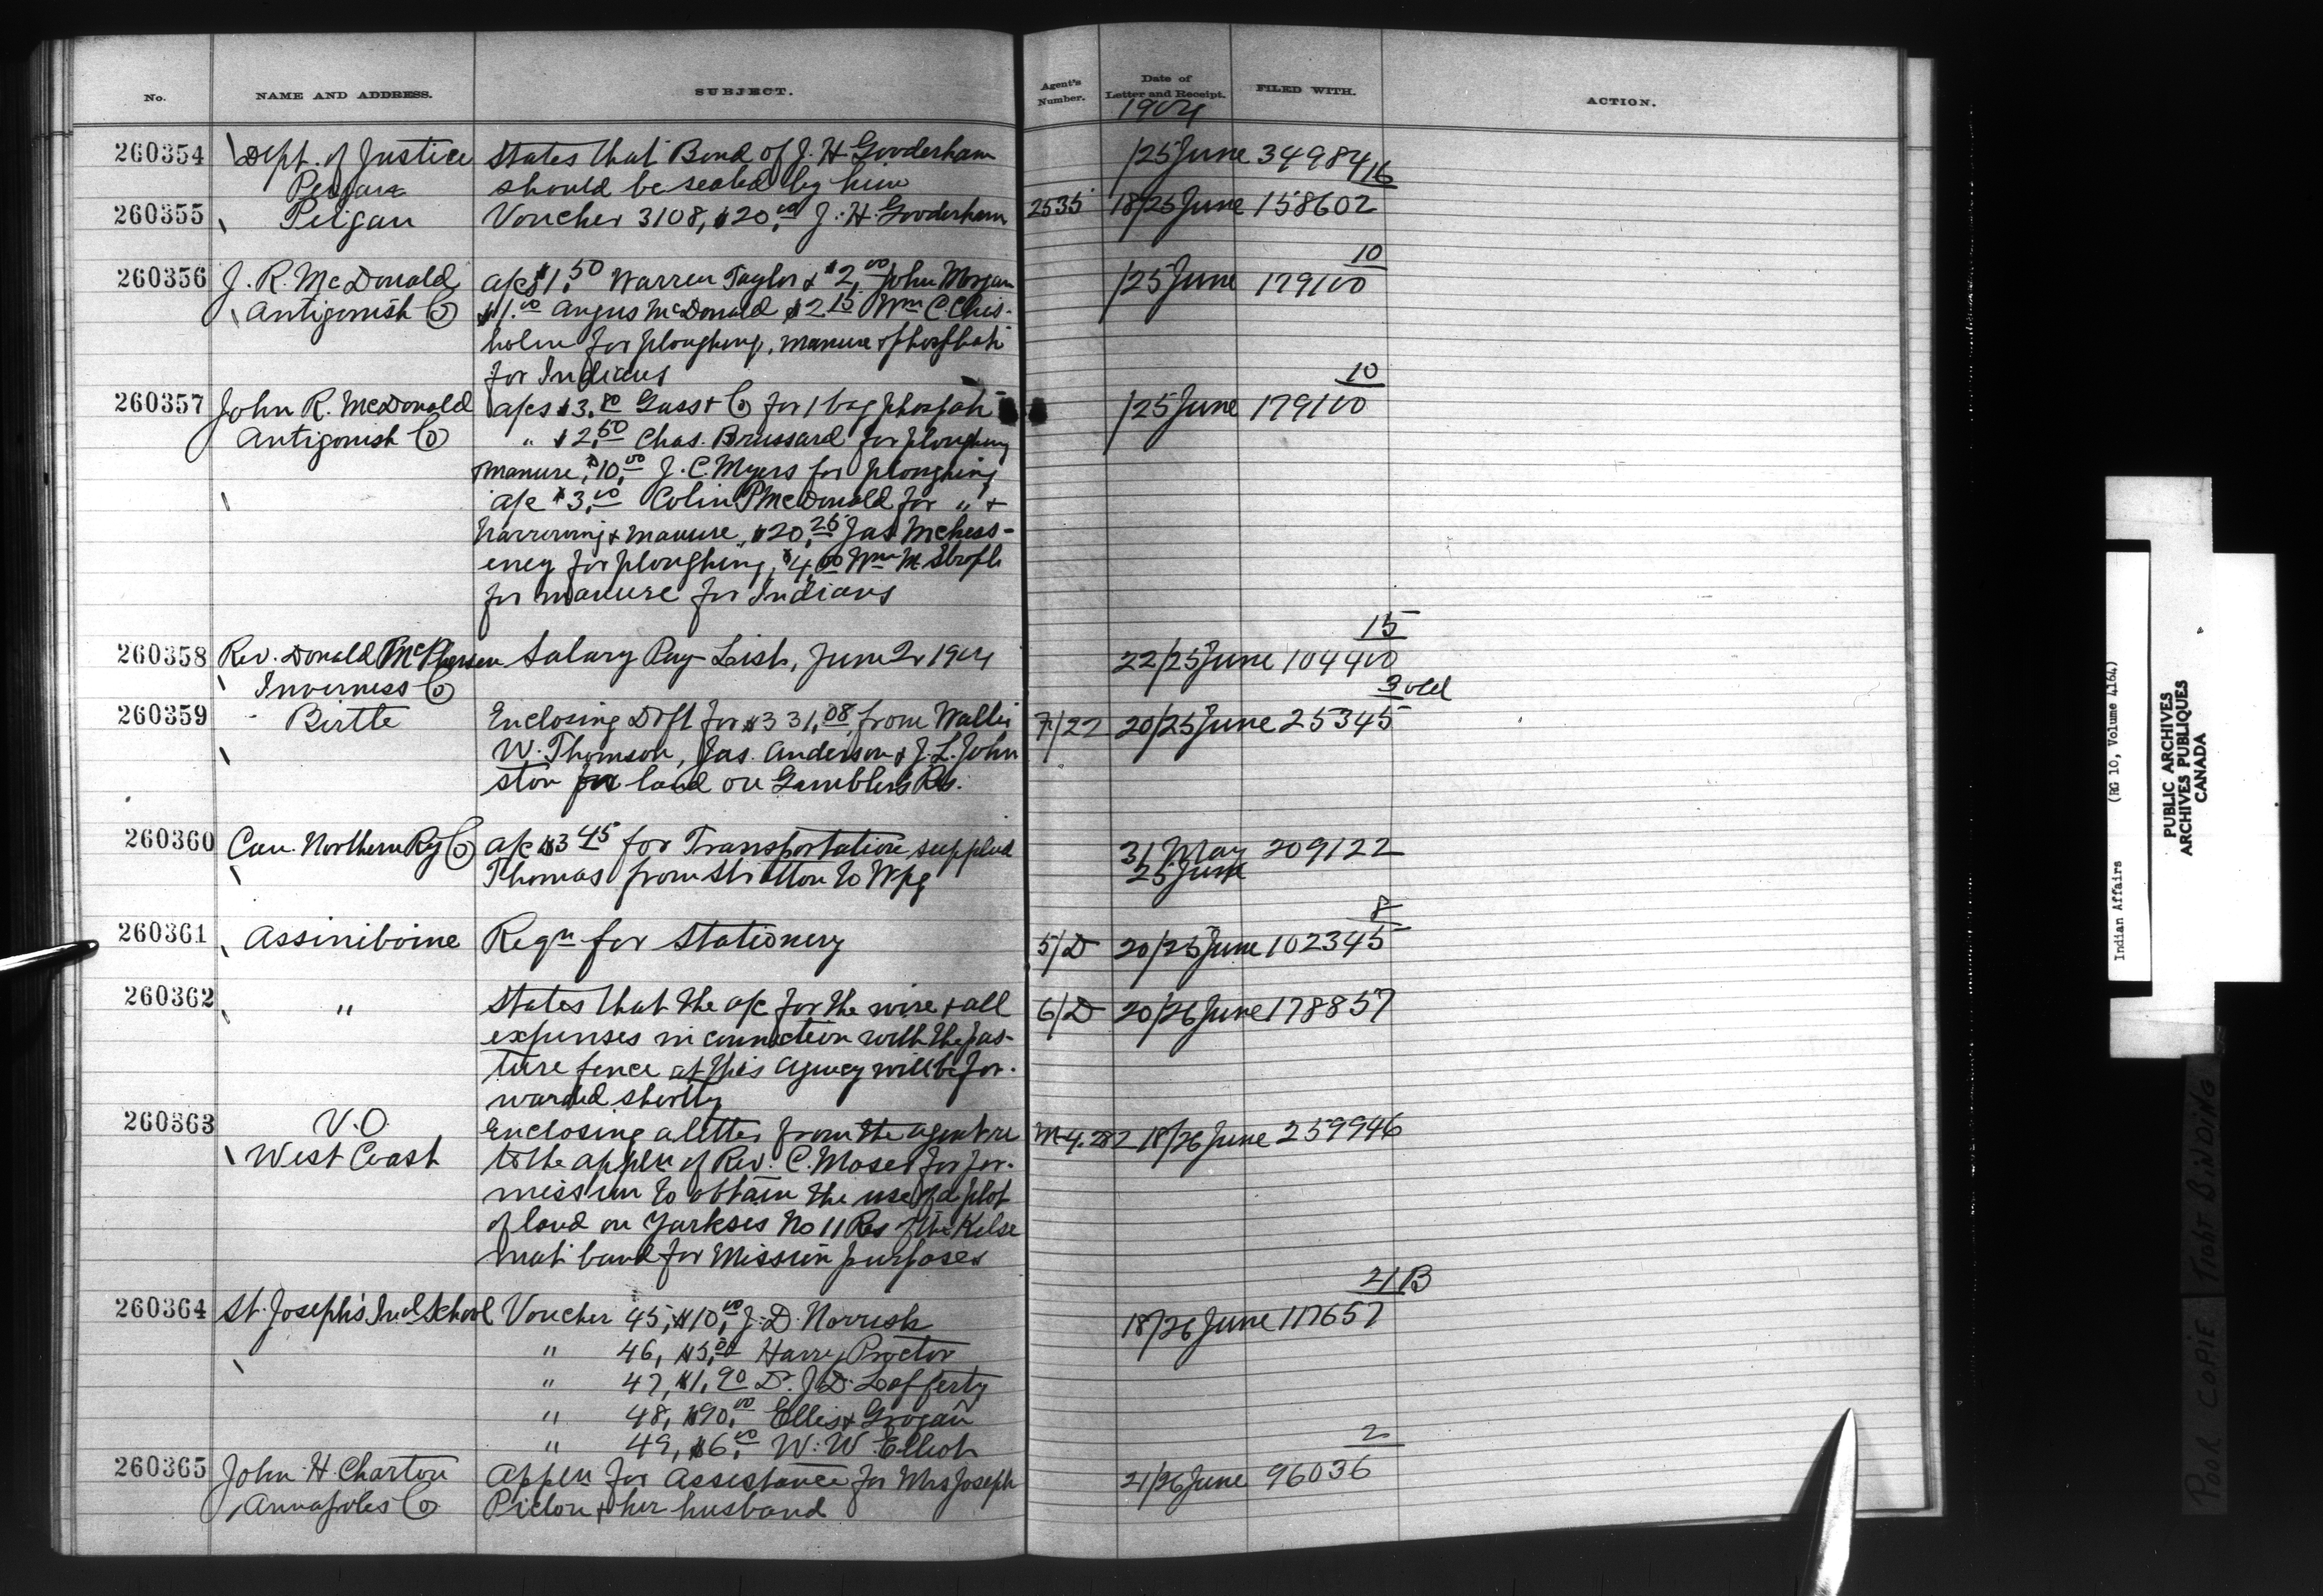 No. NAME AND ADDRESS. SUBJECT. Agent's Number. Date of Letter and Receipt. FILED WITH. ACTION.
1904
260354 Dept. of Justice States that Bond of J. H. Gooderham /25 June 34984 16
Peigan should be sealed by him
260355 Peigan Voucher 3108, $20.00 J. H. Gooderham 2535 18/25 June 158602
10
260356 J. R. McDonald a/cs $1.50 Warren Taylor & $2.00 John Morgan /25 June 179100
Antigonish Co $1.00 Angus McDonald $2.15 Wm C. Chis-
holm for ploughing, manure & phosphate
for Indians
10
260357 John R. McDonald a/cs $3.80 Gass & Co for 1 bag phosphate /25 June 179100
Antigonish Co " $2.50 Chas. Brussard for ploughing
manure, $10.00 J. C. Myers for ploughing
a/c $3.00 Colin P McDonald for " &
harrowing & manure, $20.25 Jas McChess-
eney for ploughing, $4.00 Wm M.
for manure for Indians
15
260358 Rev. Donald McPherson Salary Pay List, June Qr 1904 22/25 June 104400
Inverness Co
3 old
260359 Birtle Enclosing Dft for $331.08 from Walter 7/22 20/25 June 25345
W. Thomson, Jas. Anderson & J. L. John
ston for land on Gamblers Res.
260360 Can. Northern Ry Co a/c $3.45 for Transportation supplied 31 May 209122
Thomas from Stratton to Wpg 25 June
8
260361 Assiniboine Reqn for Stationery 5/D 20/25 June 102345
260362 " States that the a/c for the wire & all 6/D 20/26 June 178857
expenses in connection with the pas-
ture fence at this Agency will be for-
warded shortly
260363 V.O. Enclosing a letter from the agent re M-4.282 18/26 June 259946
West Coast to the appln of Rev. C. Moser for per-
mission to obtain the use of a plot
of land on Yarksis No 11 Res of the Kelse
mat band for Mission purposes
21 B
260364 St. Joseph's Ind School Voucher 45, $10.00 J. D. Norrish 18/26 June 117657
" 46, $5.00 Harry Proctor
" 47, $1.90 Dr. J. D. Lafferty
" 48, $90.00 Ellis & Grogan
" 49, $6.00 W. W. Elliott
2
260365 John H. Charton Appln for Assistance for Mrs Joseph 21/26 June 96036
Annapolis Co Pictou & her husband
Indian Affairs (RG 10, Volume 4164)
PUBLIC ARCHIVES
ARCHIVES PUBLIQUES
CANADA
POOR COPIE TIGHT BINDING